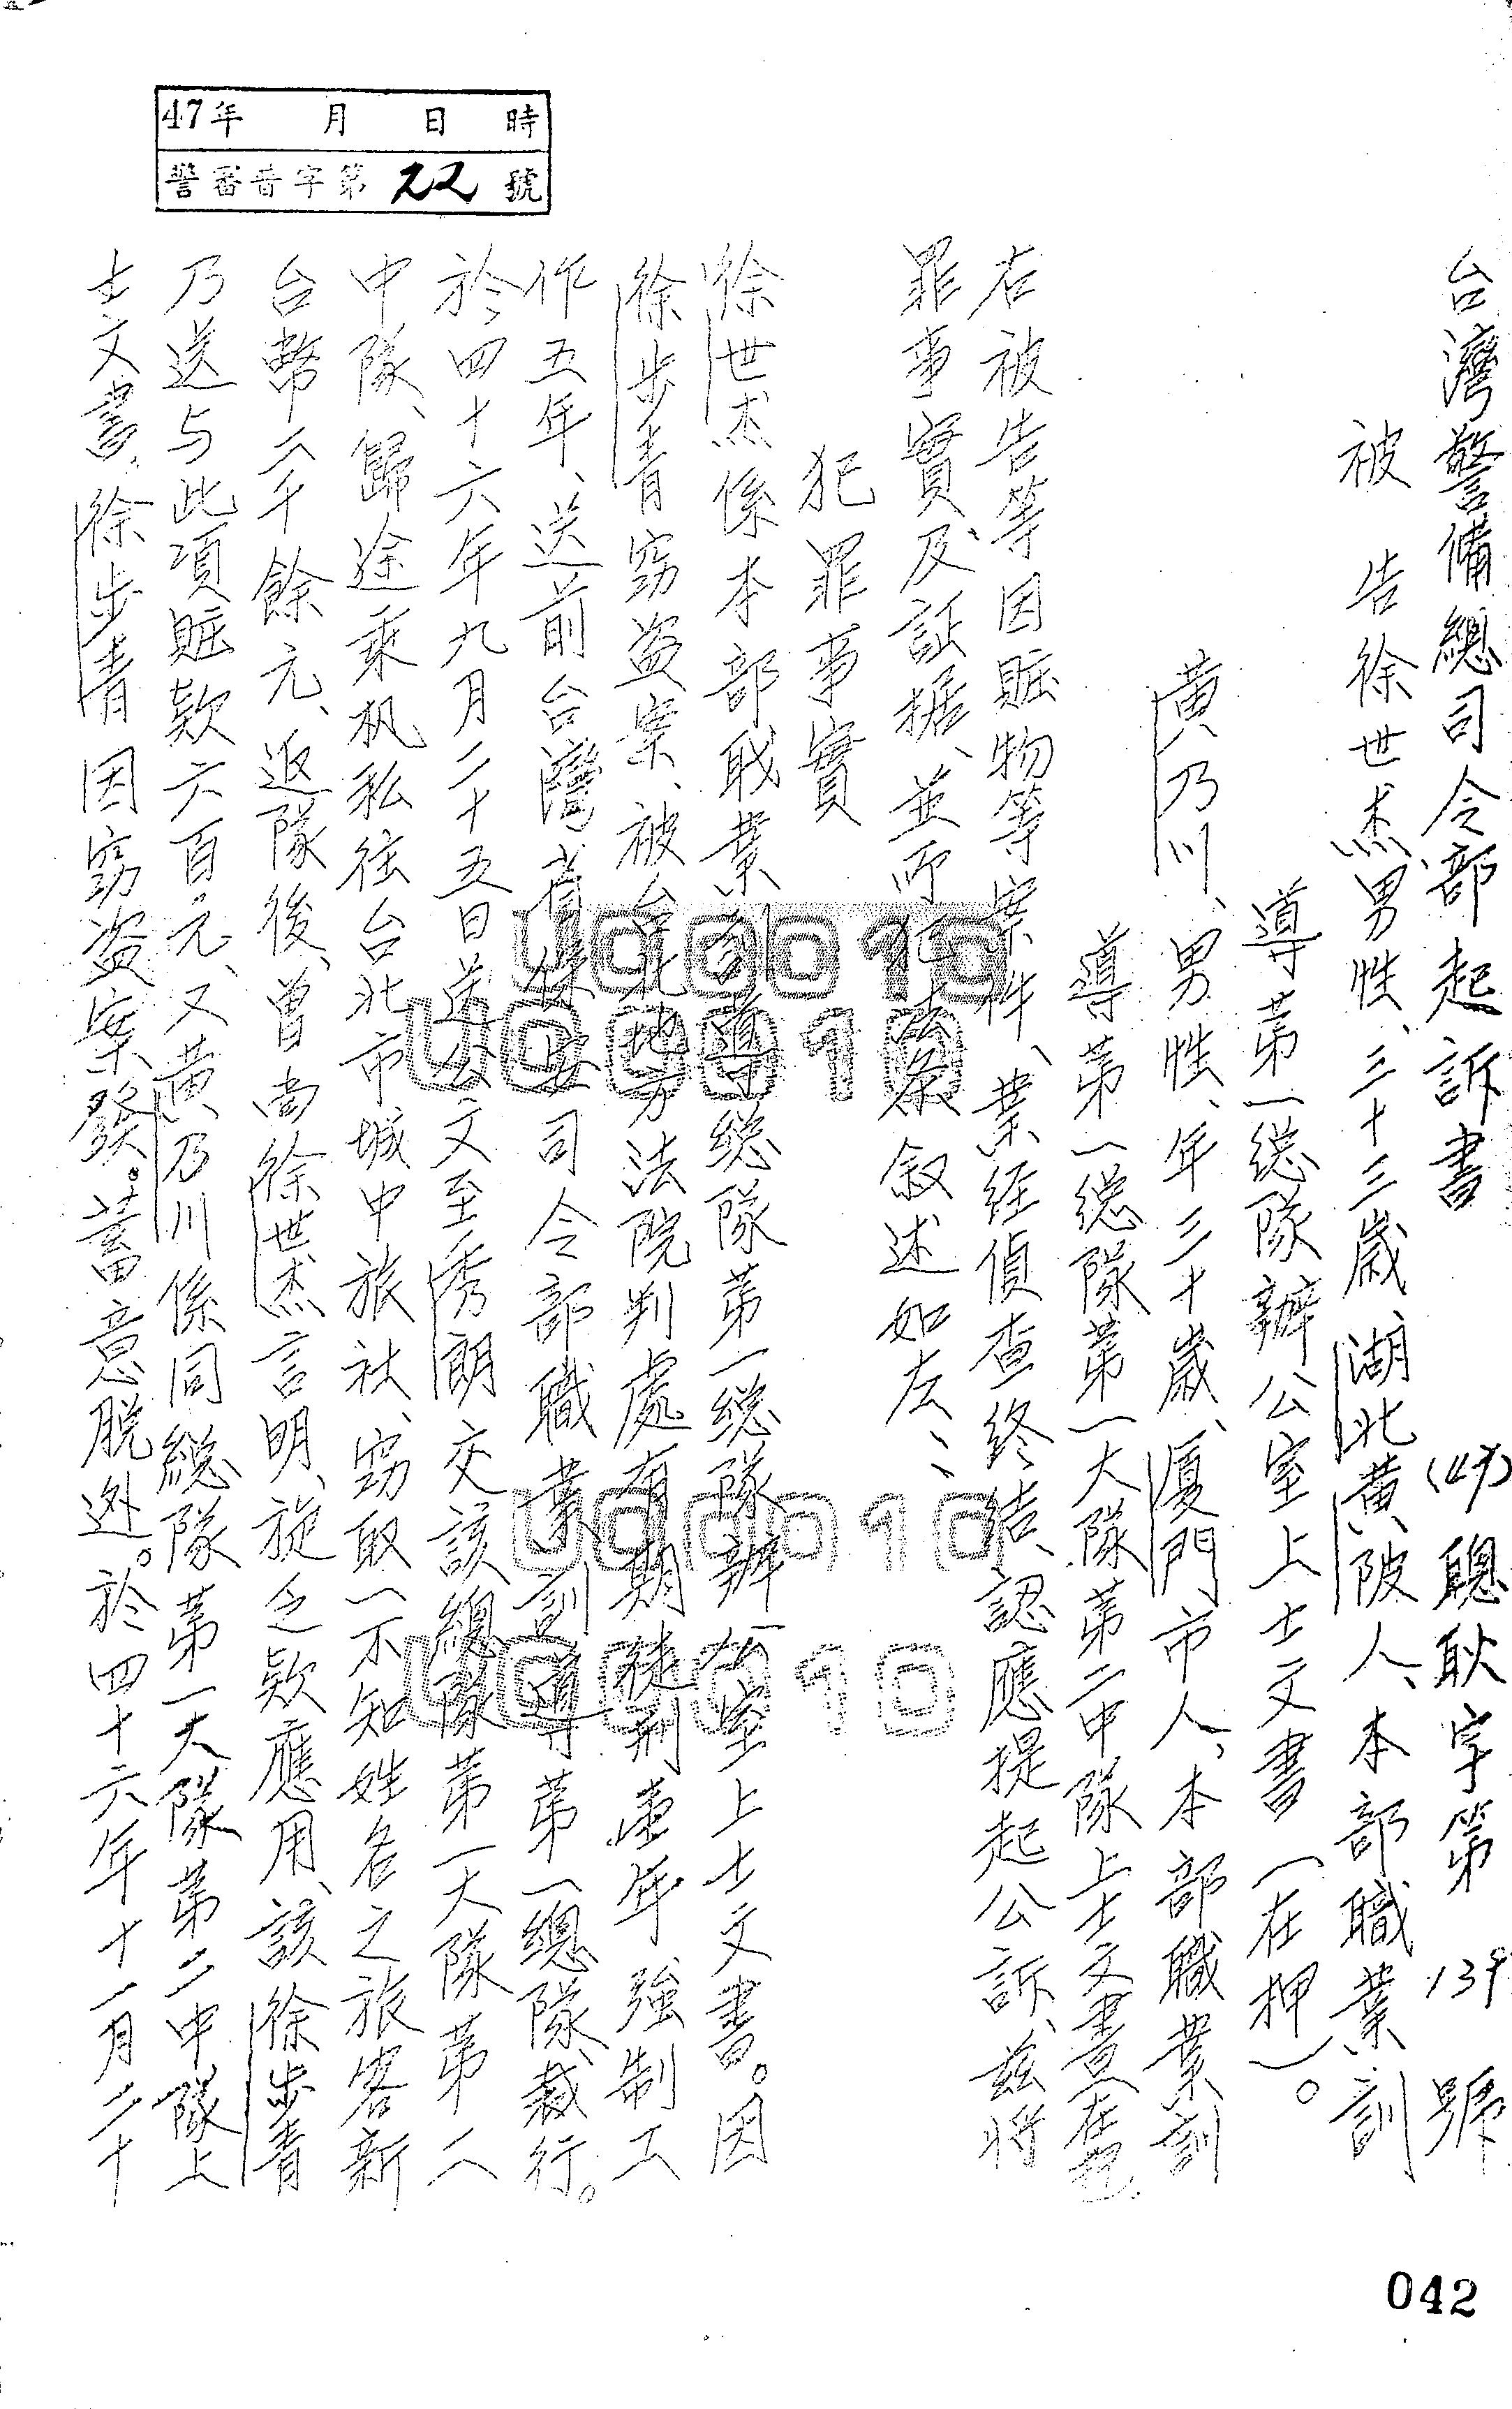 47年 月 日 時
警審音字第22號
台灣警備總司令部起訴書 (47)聰耿字第139號
被告徐世杰男性、三十三歲、湖北黃陂人、本部職業訓
導第一總隊辦公室上士文書(在押)。
黃乃川、男性、年三十歲、厦門市人、本部職業訓
導第一總隊第一大隊第二中隊上士文書在押
右被告等因賍物等案件、業经偵查終结、認應提起公訴、茲將
罪事實及証據、並所犯法条叙述如左、
犯罪事實
徐世杰係本部职業訓導總隊第一總隊辦公室上士文書。因
徐步青窃盗案、被台北地方法院判處有期徒刑壹年強制工
作五年、送前台灣省保安司令部職業訓導第一總隊裁行。
於四十六年九月二十五日送公文至秀朗交該總隊第一大隊第二
中隊、歸途乘机私往台北市城中旅社、窃取一不知姓名之旅客新
台幣二千餘元、返隊後、曾尚徐世杰言明、旋乏欵應用、該徐步青
乃送与此項賍欵六百元、又黃乃川係同總隊第一大隊第二中隊上
士文書、徐步青因窃盗案發。蓄意脫逃。於四十六年十一月二十
042
U00010
U00010
U00010
U00010